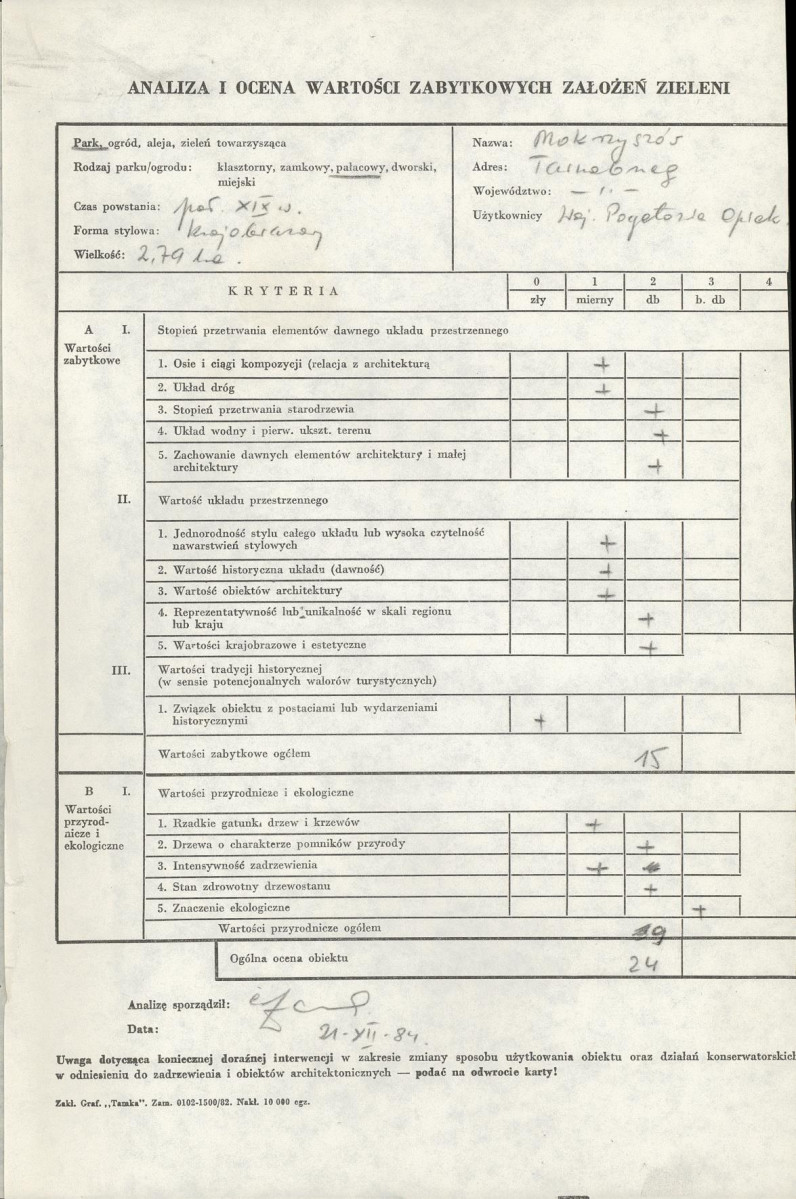 ANALIZA I OCENA WARTOŚCI ZABYTKOWYCH ZAŁOŻEŃ ZIELENI
Park, ogród, aleja, zieleń towarzysząca
Rodzaj parku/ogrodu: klasztorny, zamkowy, pałacowy, dworski,
miejski
Czas powstania: poł. XIX w.
Forma stylowa: krajobrazowy
Wielkość: 2,79 ha.
Nazwa: Mokrzyszów
Adres: Tarnobrzeg
Województwo: — ,, —
Użytkownicy Woj. Pogotowie Opiek.
KRYTERIA 0 1 2 3 4
zły mierny db b. db
A I. Stopień przetrwania elementów dawnego układu przestrzennego
Wartości
zabytkowe
1. Osie i ciągi kompozycji (relacja z architekturą +
2. Układ dróg +
3. Stopień przetrwania starodrzewia +
4. Układ wodny i pierw. ukszt. terenu +
5. Zachowanie dawnych elementów architektury i małej
architektury +
II. Wartość układu przestrzennego
1. Jednorodność stylu całego układu lub wysoka czytelność
nawarstwień stylowych +
2. Wartość historyczna układu (dawność) +
3. Wartość obiektów architektury +
4. Reprezentatywność lub unikalność w skali regionu
lub kraju +
5. Wartości krajobrazowe i estetyczne +
III. Wartości tradycji historycznej
(w sensie potencjonalnych walorów turystycznych)
1. Związek obiektu z postaciami lub wydarzeniami
historycznymi +
Wartości zabytkowe ogółem 15
B I. Wartości przyrodnicze i ekologiczne
Wartości
przyrod-
nicze i
ekologiczne
1. Rzadkie gatunki drzew i krzewów +
2. Drzewa o charakterze pomników przyrody +
3. Intensywność zadrzewienia +
4. Stan zdrowotny drzewostanu +
5. Znaczenie ekologiczne +
Wartości przyrodnicze ogółem 9
Ogólna ocena obiektu 24
Analizę sporządził:
Data: 21-XII-84.
Uwaga dotycząca koniecznej doraźnej interwencji w zakresie zmiany sposobu użytkowania obiektu oraz działań konserwatorskich
w odniesieniu do zadrzewienia i obiektów architektonicznych — podać na odwrocie karty!
Zakł. Graf. „Tamka". Zam. 0102-1500/82. Nakł. 10 000 egz.